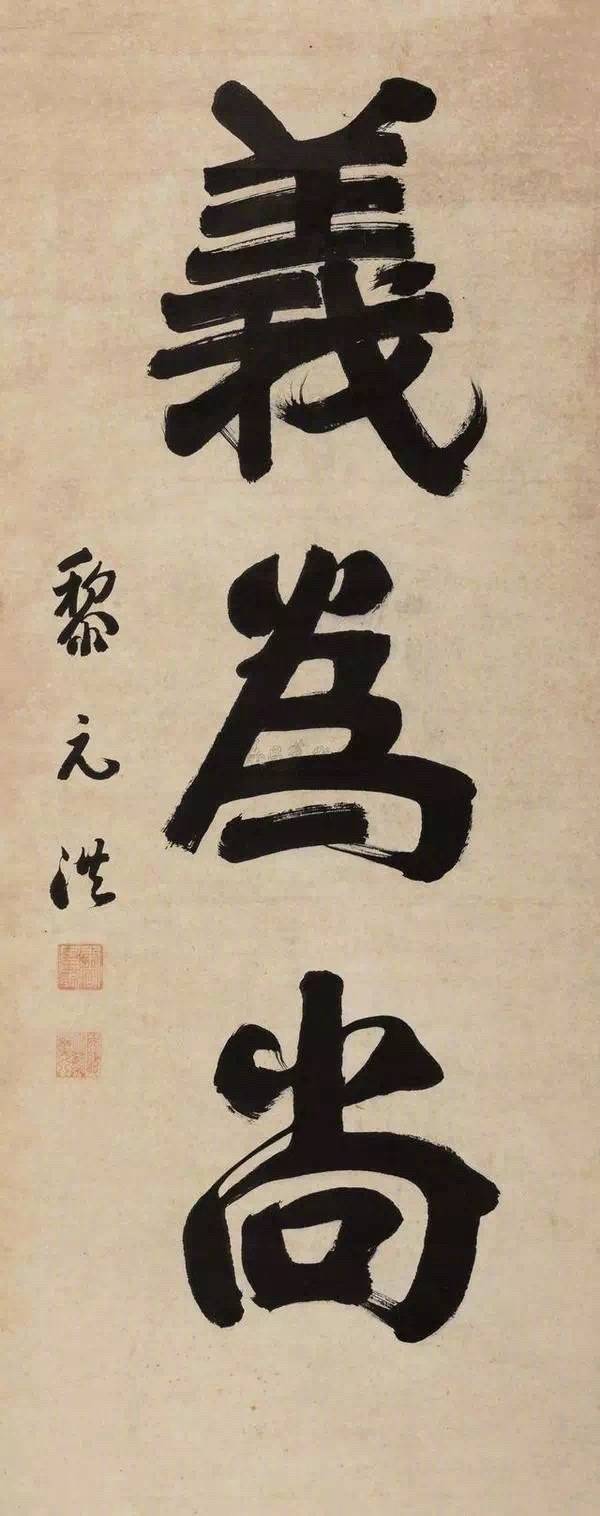 義為尚
黎元洪